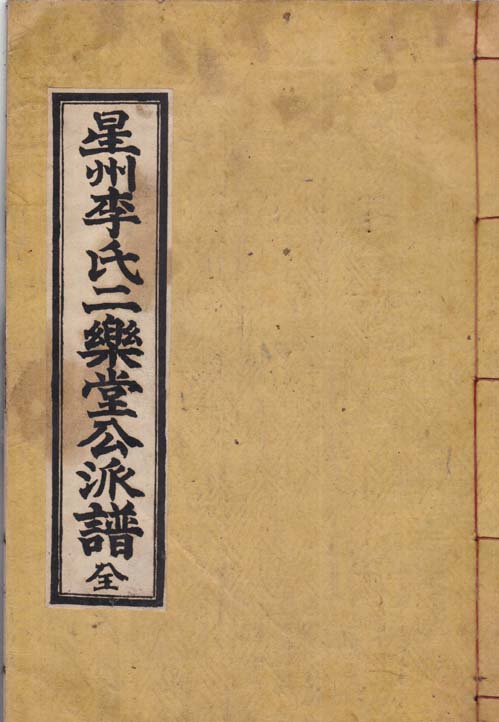 星州李氏二樂堂公派譜全